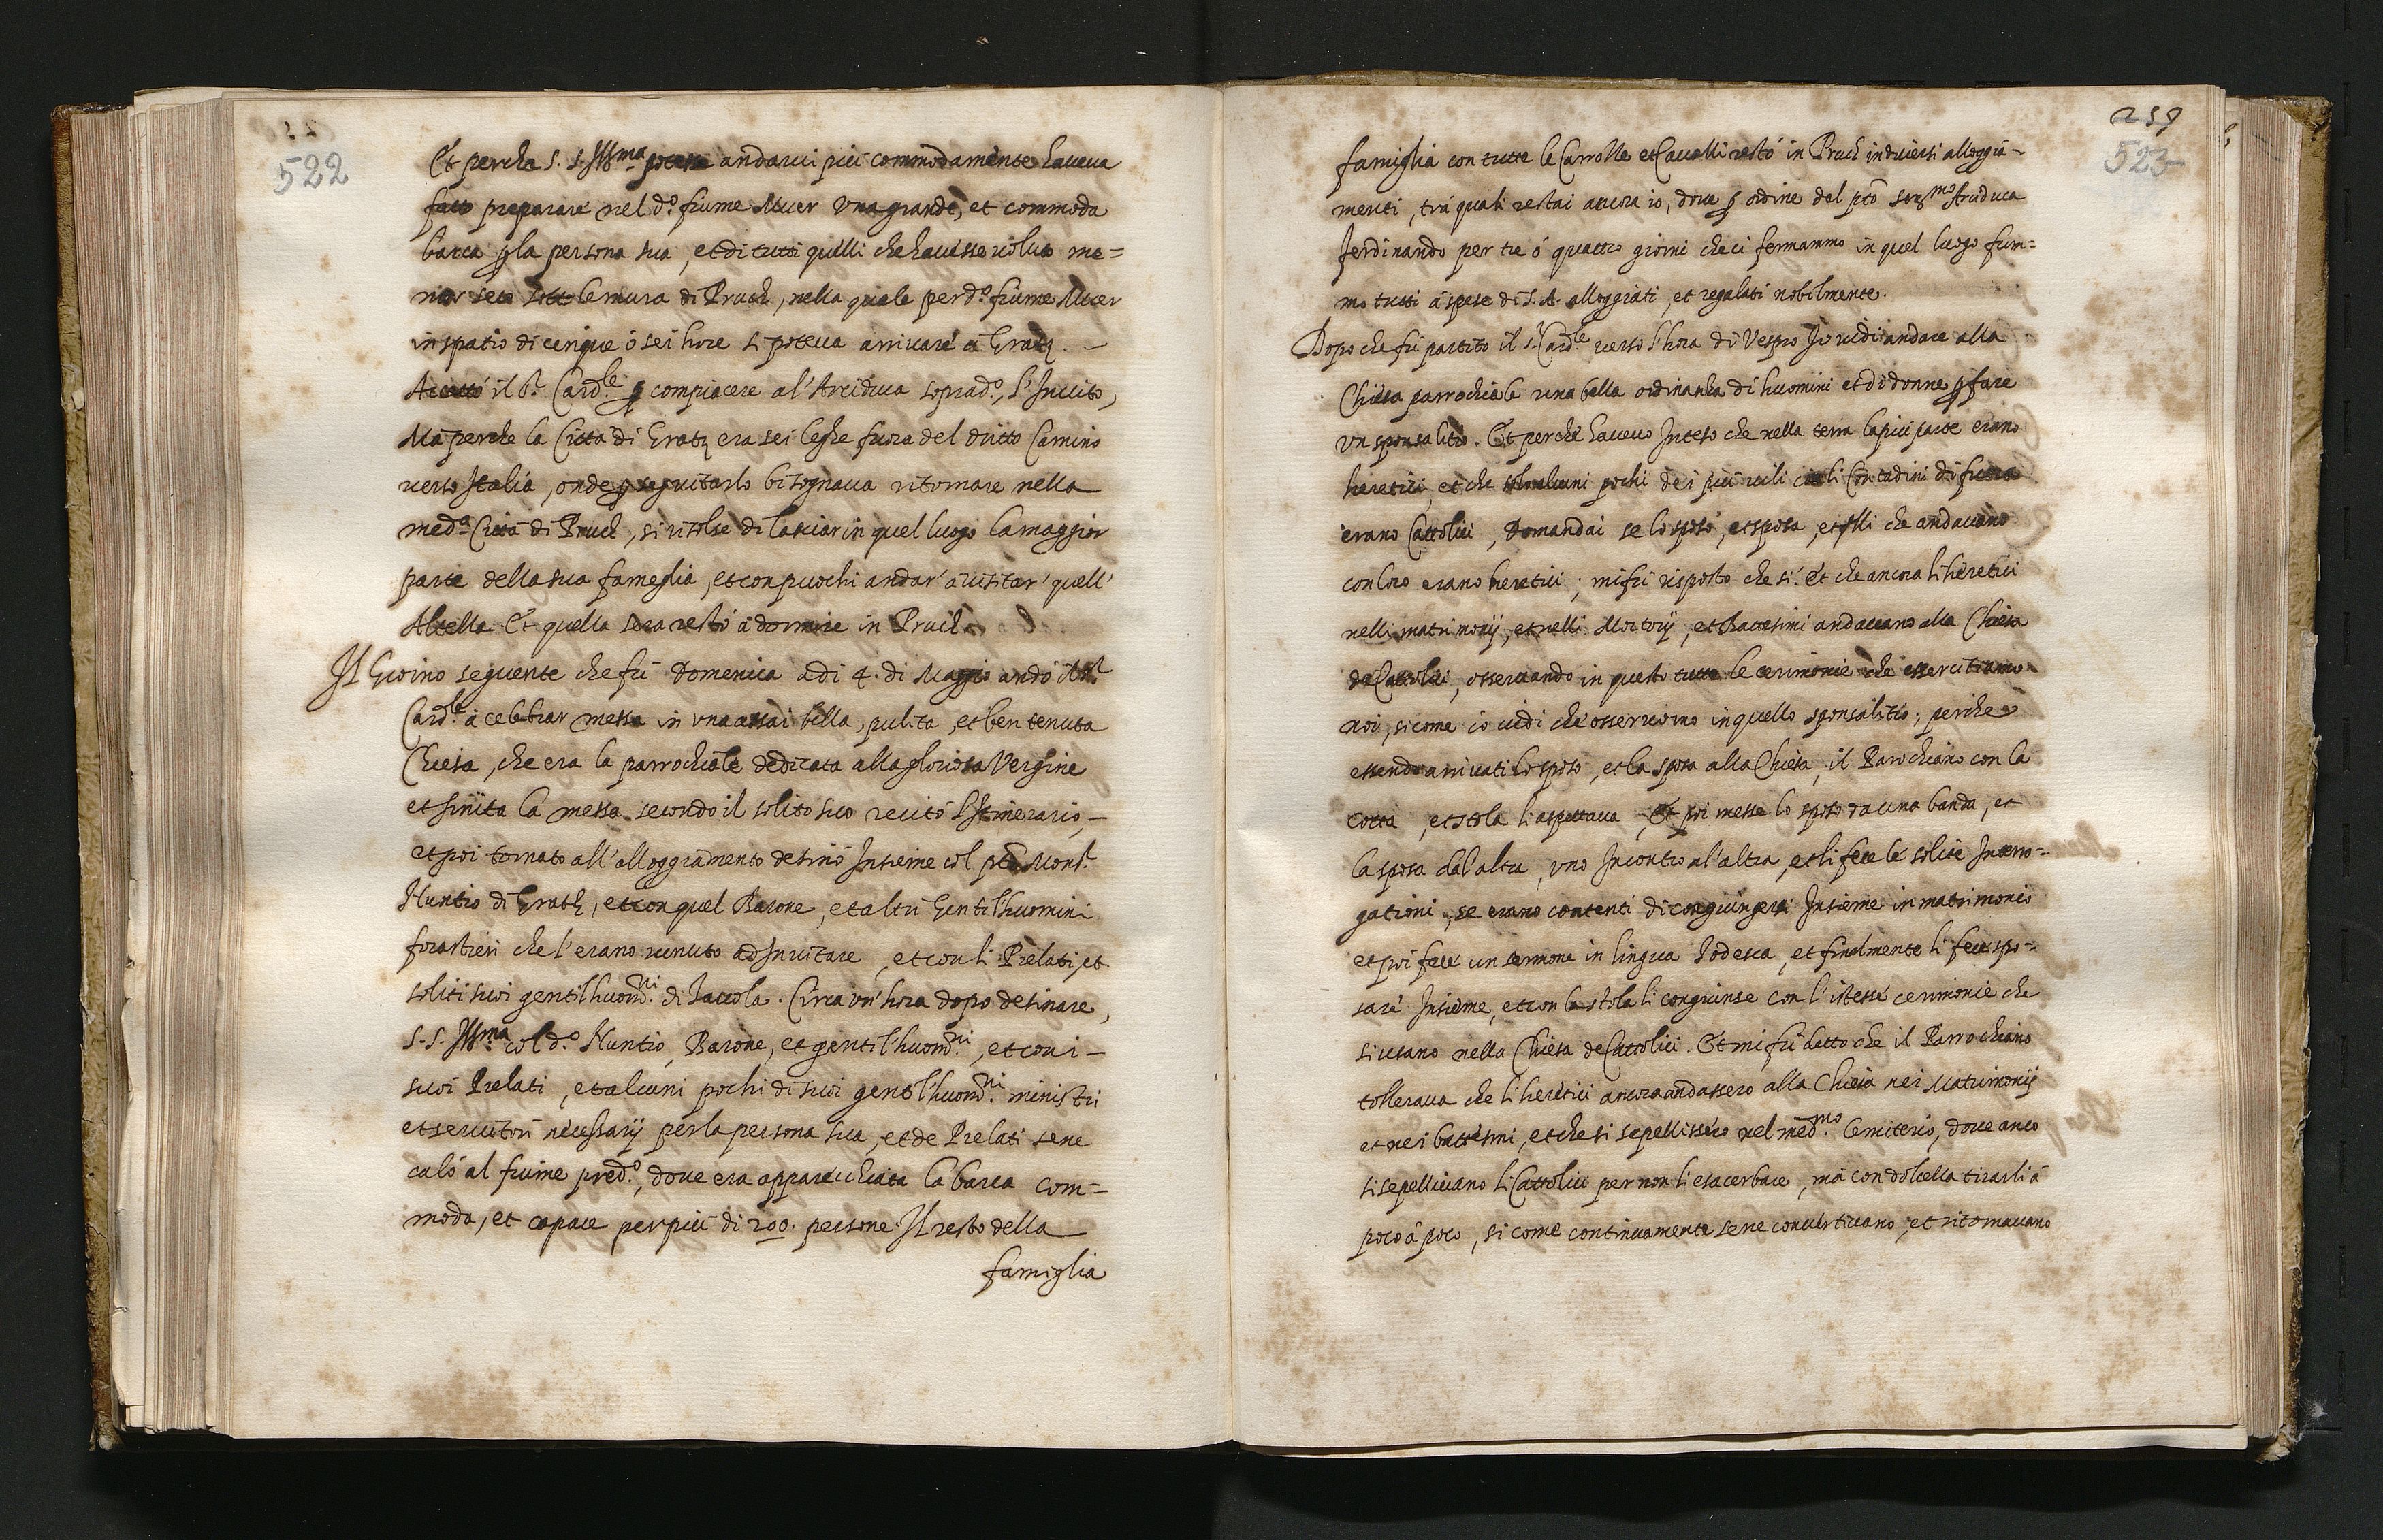 522
Et perche S. S. Ill.ma potesse andarui piu commodamente haueua
fatto preparare nel d.o fiume Muer una grande, et commoda
barca p la persona sua, et di tutti quelli che hauesse uoluto me=
nar seco sotto le mura di Pruch, nella quale per d.o fiume Muer
in spatio di cinque ó sei hore si poteua arriuare á Gratz.
Accettó il S.r Card.le p compiacere al'Arciduca soprad.o, l'Inuito,
Má perche la Cittá di Gratz era sei leghe fuora del dritto Camino
uerso Italia, onde p seguitarlo bisognaua ritornare nella
med.a Cittá di Pruch, si risolse di lasciar in quel luogo la maggior
parte della sua fameglia, et con puochi andar' á uisitar' quell'
Altezza. Et quella sera restó á dormire in Pruch.
Il Giorno seguente che fú Domenica adi 4. di Maggio andó il S.r
Card.le á celebrar messa in una assai bella, pulita, et ben tenuta
Chiesa, che era la parrochiale dedicata alla gloriosa Vergine
et finita la messa secondo il solito suo recitó l'Itinerario, –
et poi tornato all'alloggiamento desinó Insieme col pto Mons.r
Nuntio di Gratz, et con quel Barone, et altri Gentil'huomini
forastieri che l'erano uenuto ad Inuitare, et con li Prelati, et
soliti suoi gentilhuom.ni di Tauola. Circa un'hora dopo desinare,
S. S. Ill.ma col d.o Nuntio, Barone, et gentil'huom.ni, et con i –
suoi Prelati, et alcuni pochi di suoi gentil'huom.ni ministri
et seruitori necessarij per la persona sua, et de Prelati se ne
caló al fiume pred.o, doue era apparecchiata la barca com=
moda, et capace per piú di 200. persone. Il resto della
famiglia
259
523
famiglia con tutte le Carrozze et Caualli restó in Pruch in diuersi alloggia=
menti, trá quali restai ancora io, doue p ordine del pto Ser.mo Arciduca
Ferdinando per tre ó quattro giorni che ci fermammo in quel luogo fum=
mo tutti á spese di S. A. alloggiati, et regalati nobilmente.
Dopo che fú partito il S.r Card.le uerso l'hora di Vespro Io uidi andare alla
Chiesa parrochiale una bella ordinanza di huomini et di donne p fare
un sponsalitio. Et perche haueuo Inteso che nella terra la piú parte erano
heretici, et che solo alcuni pochi dei piú uili et li Contadini di fuora
erano Cattolici, Domandai se lo sposo, et sposa, et qlli che andauano
con loro erano heretici; mi fú risposto che si. Et che ancora li heretici
nelli matrimonij, et nelli Mortorij, et Battesimi andauano alla Chiesa
de Cattolici, osseruando in questo tutte le cerimonie che essercitiamo
noi, si come io uidi che osseruorno in quello sponsalitio, perche
essendo arriuati lo sposo, et la sposa alla Chiesa, il Parochiano con la
cotta, et stola li aspettaua, Et poi messe lo sposo da una banda, et
la sposa dal'altra, uno Incontro al'altra, et li fece le solite Interro=
gationi, se erano contenti di congiungersi Insieme in matrimonio
et poi fece un sermone in lingua Todesca, et finalmente li fece spo=
sare Insieme, et con la stola li congiunse con l'istesse cerimonie che
si usano nella Chiesa de Cattolici. Et mi fú detto che il Parrochiano
tolleraua che li heretici ancora andassero alla Chiesa nei Matrimonij
et nei battesmi, et che si sepellissero nel med.mo Cemiterio, doue anco
si sepelliuano li Cattolici per non li esacerbare, má con dolcezza tirarli á
poco á poco, si come continuamente se ne conuertiuano, et ritornauano